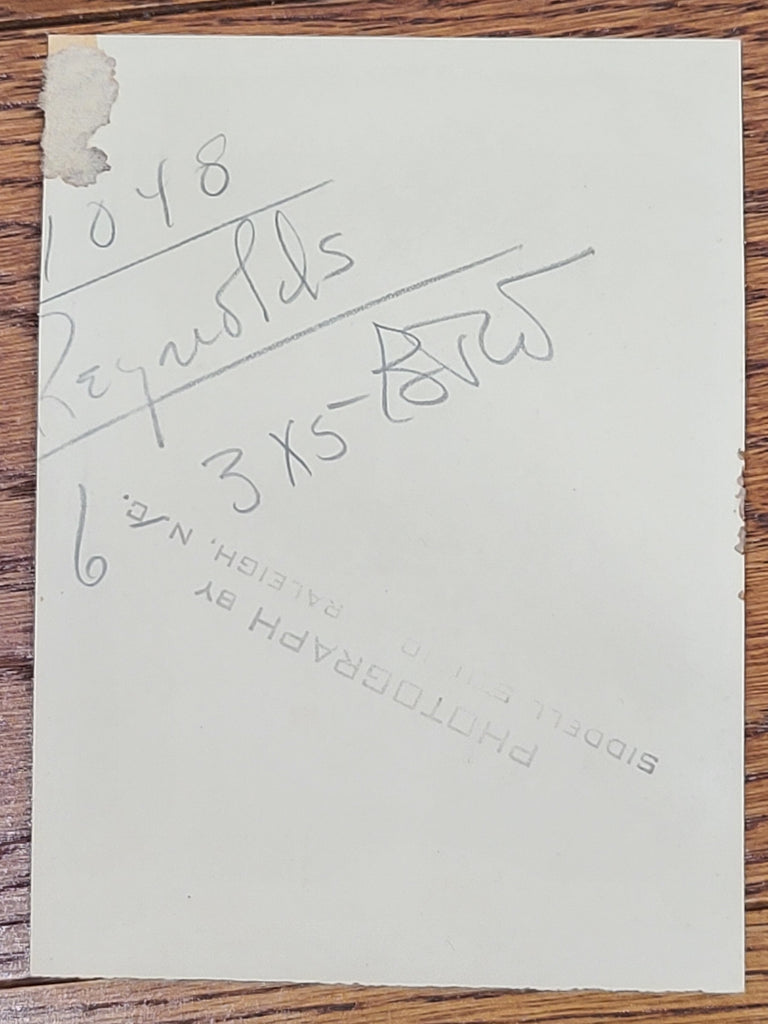 1048
Reynolds
3 X 5 - B+W
6
PHOTOGRAPH BY
SIDDELL STUDIO RALEIGH, N.C.